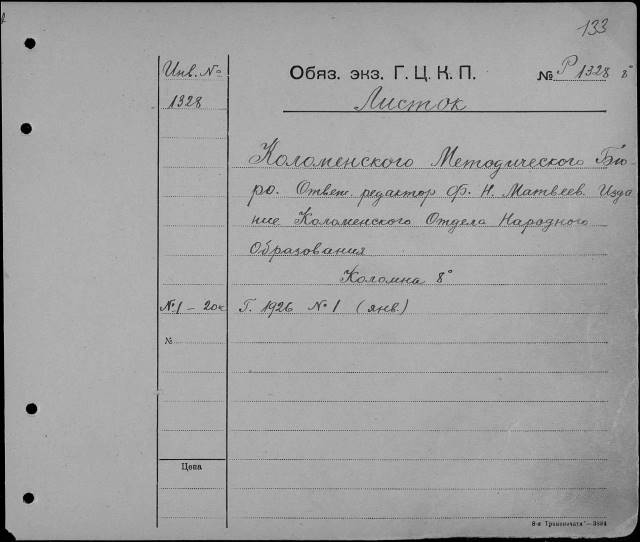 133
Инв. №
Обяз. экз. Г. Ц. К. П.
№ Р 1328 8°
1328
Листок
Коломенского Методического Бю-
ро. Ответ. редактор Ф. Н. Матвеев. Изда
ние Коломенского Отдела Народного
Образования
Коломна 8°
№1 — 20к
Г. 1926 №1 (янв.)
№
Цена
8-я Транспечати — 3884